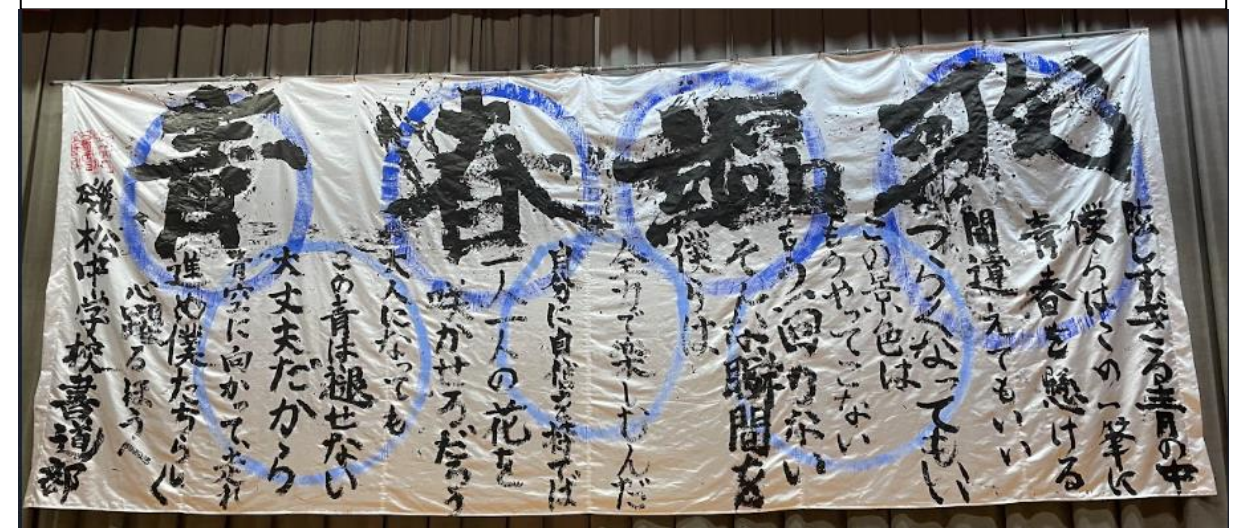 青春
眩しすぎる青の中
僕らはこの一筆に
青春を懸ける
間違えてもいい
つらくなってもいい
この景色は
もうやってこない
もう一回のない
そんな瞬間を
僕らは
全力で楽しむんだ
自分に自信を持てば
一人一人の花を
咲かせるだろう
大人になっても
この青は褪せない
大丈夫だから
青空に向かって、
進め僕たちらしく
心躍るほうへ
磯松中学校書道部